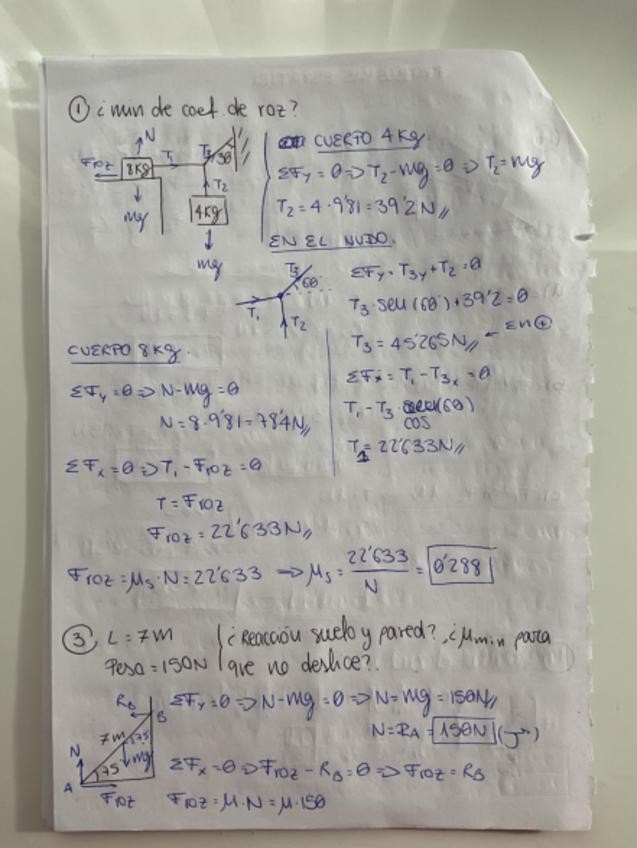 ① ¿min de coef. de roz?
N
Froz
8Kg
T₁
T₃
30
T₂
mg
4Kg
mg
CUERPO 4Kg.
ΣFy = 0 => T₂-mg=0 => T₂=mg
T₂=4·9'81=39'2N//
EN EL NUDO.
T₃
60°
T₁
T₂
ΣFy = T₃y+T₂=0
T₃·sen(60°)+39'2=0
T₃=45'265N// ← En ⊕
ΣFx = T₁-T₃x=0
T₁-T₃ (60)
cos
T₁=22'633N//
CUERPO 8Kg.
ΣFy=0=>N-mg=0
N=8·9'81=78'4N//
ΣFx=0=>T₁-Froz=0
T=Froz
Froz=22'633N//
Froz=μs·N=22'633 => μs= 22'633/N = 0'288
③ L=7m
Peso=150N
¿Reacción suelo y pared?, ¿μmin para
que no deslice?
RB
B
7m
75
N
mg
75
A
Froz
ΣFy=0=>N-mg=0=>N=mg=150N//
N=RA=150N
ΣFx=0=>Froz-RB=0=>Froz=RB
Froz=μ·N=μ·150